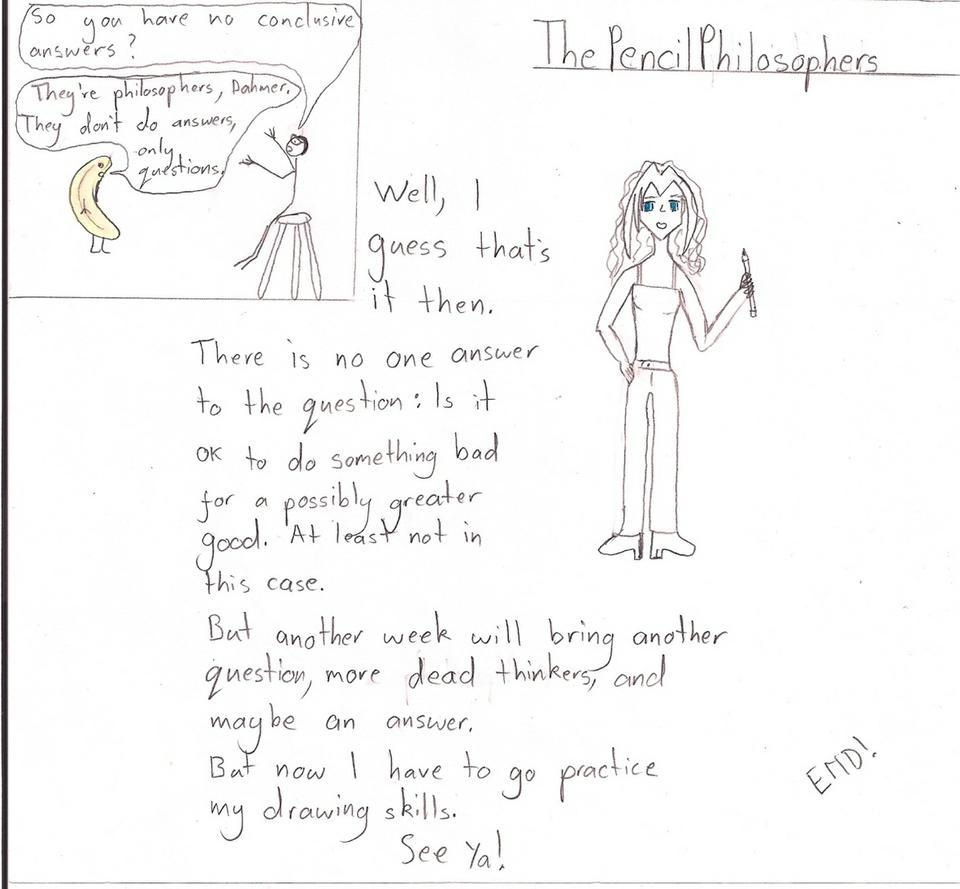 So you have no conclusive
answers?
They're philosophers, Dahmer.
They don't do answers,
only
questions.
The Pencil Philosophers
Well, I
guess that's
it then.
There is no one answer
to the question: Is it
OK to do something bad
for a possibly greater
good. At least not in
this case.
But another week will bring another
question, more dead thinkers, and
maybe an answer.
But now I have to go practice
my drawing skills.
See Ya!
END!